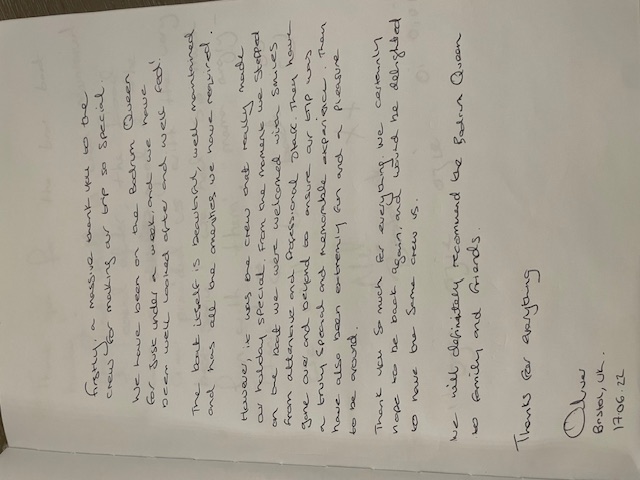 Firstly, a massive thank you to the
crew for making our trip so special.
We have been on the Bodrum Queen
for just under a week and we have
been well looked after and well fed!
The boat itself is beautiful, well maintained
and has all the amenities we have required.
However, it was the crew that really made
our holiday special. From the moment we stepped
on the boat we were welcomed with smiles
from attentive and professional staff. They have
gone over and beyond to ensure our trip was
a truly special and memorable experience. They
have also been extremely fun and a pleasure
to be around.
Thank you so much for everything. We certainly
hope to be back again, and would be delighted
to have the same crew vs.
We will definitely recommend the Bodrum Queen
to family and friends.
Thanks for everything
Oliver
Bristol, UK.
17.06.22